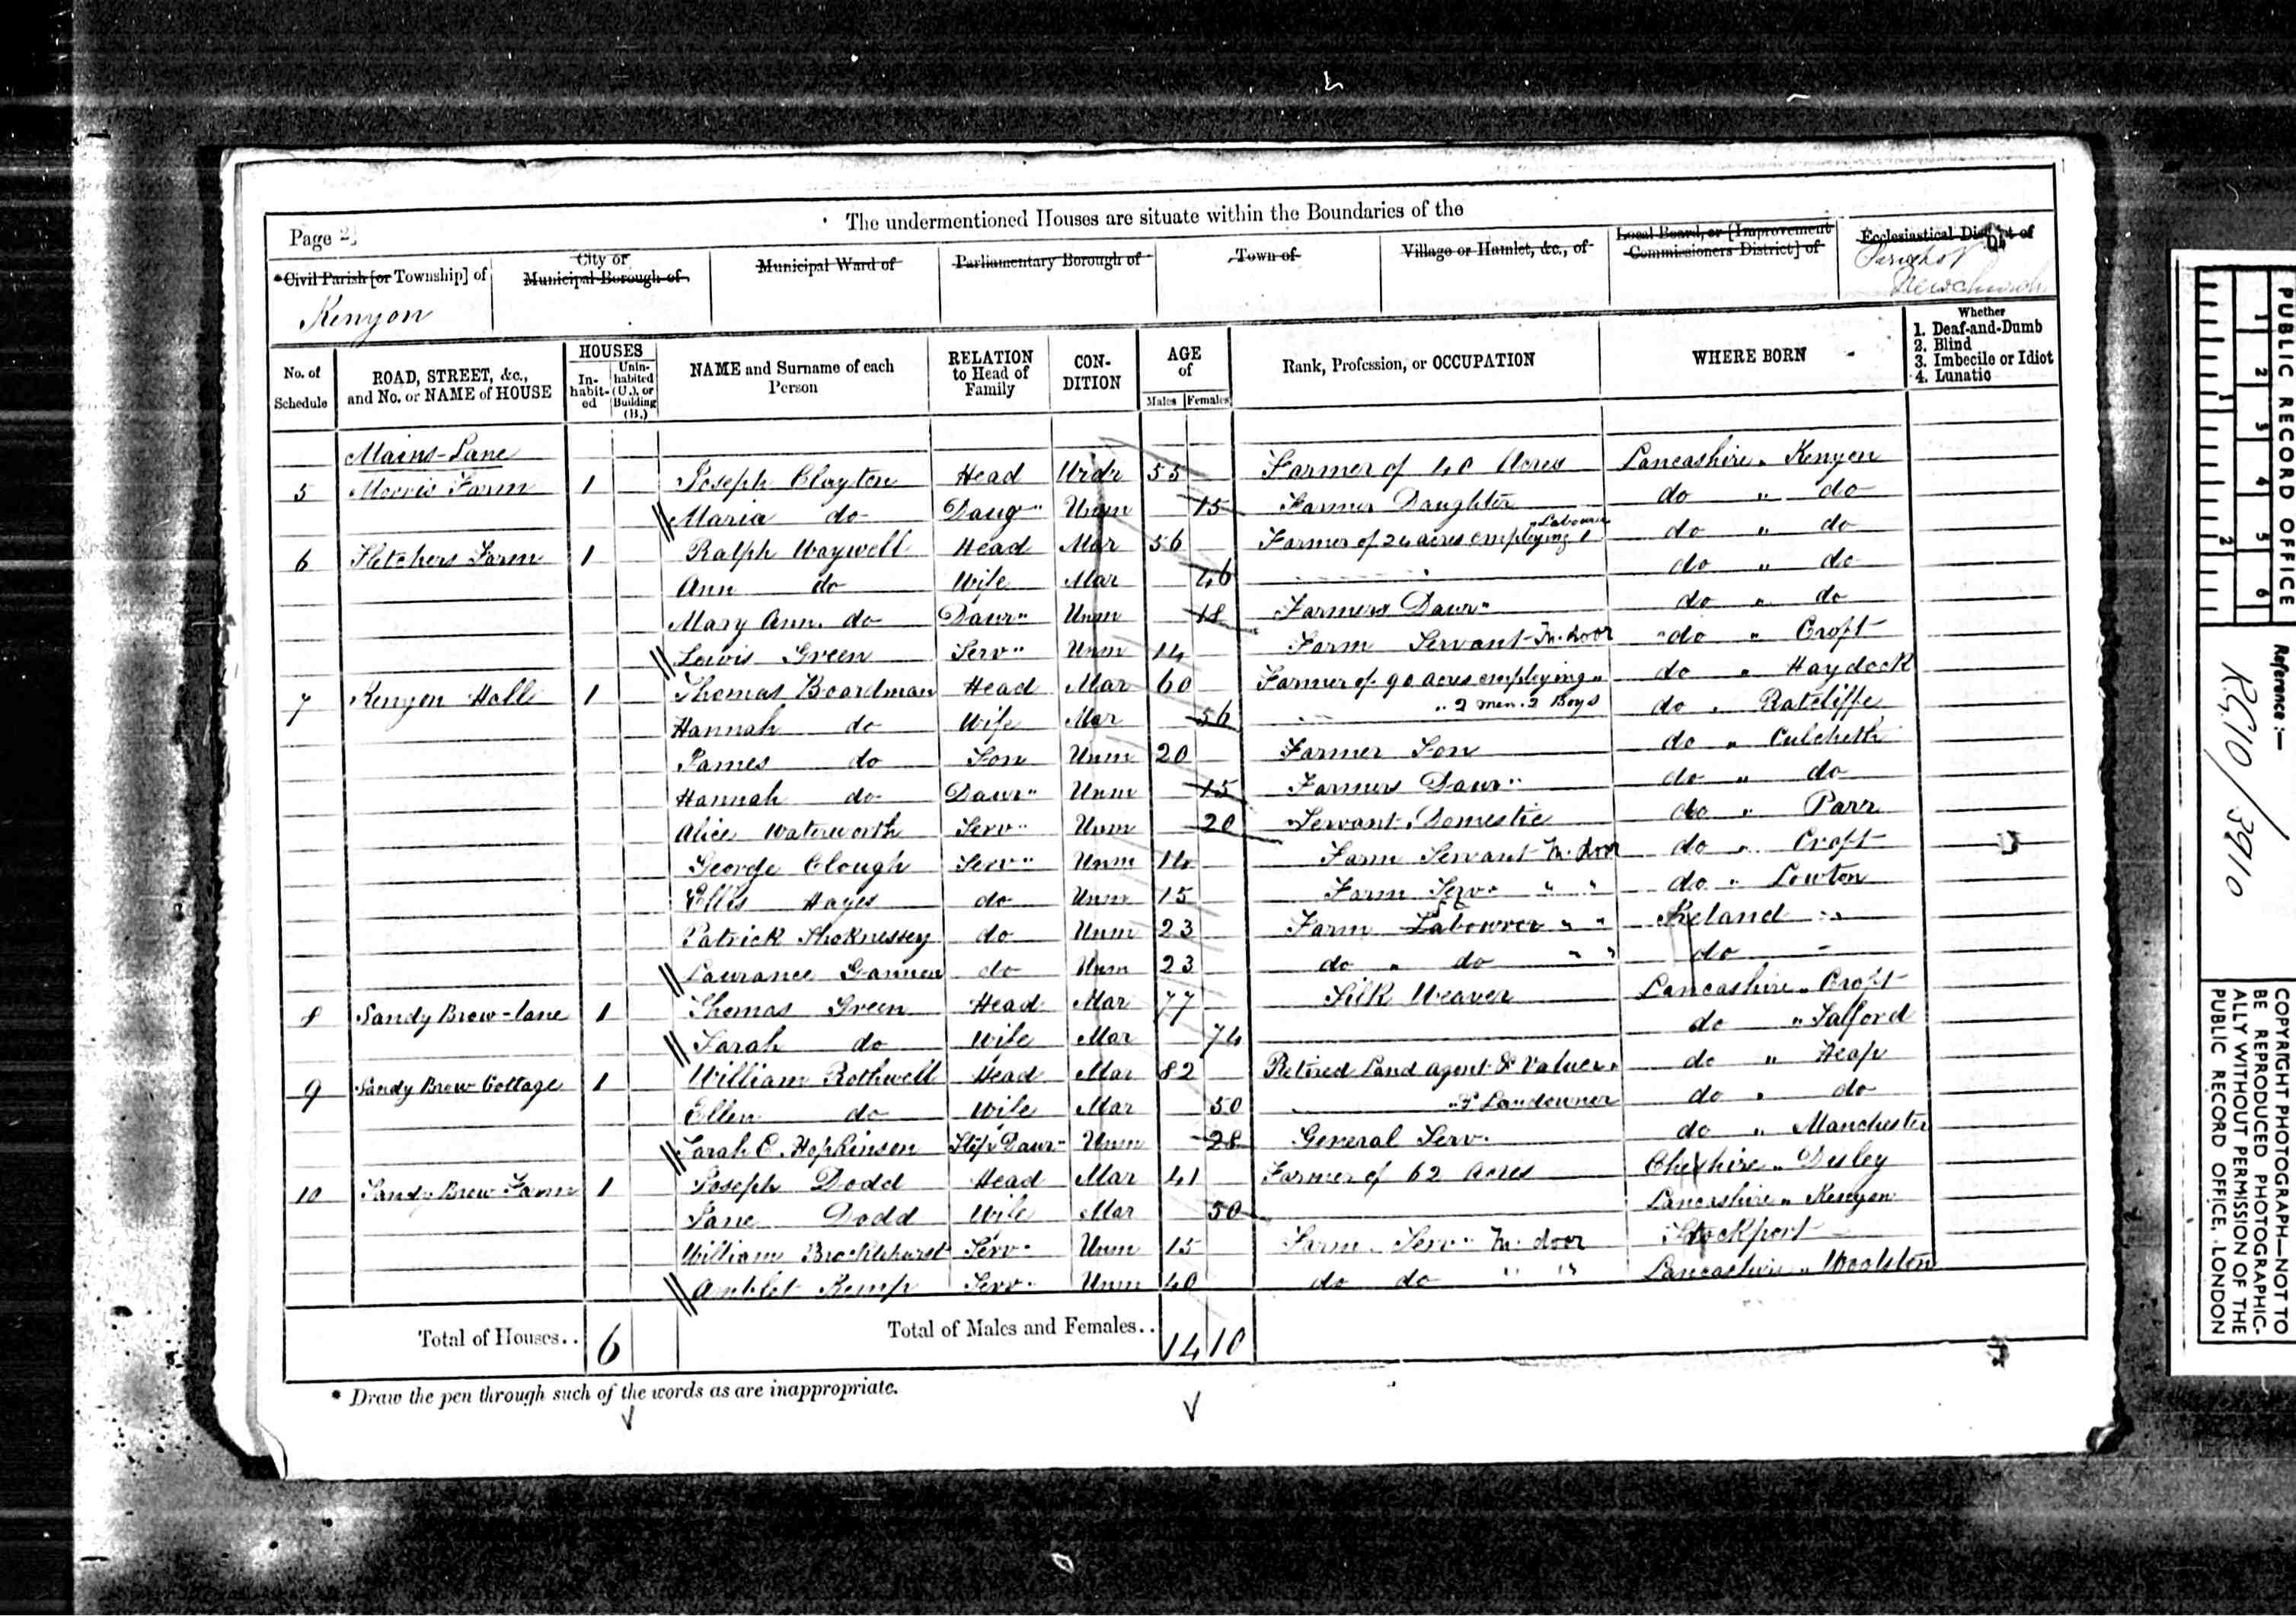 The undermentioned Houses are situate within the Boundaries of the
Page 2
*Civil Parish [or Township] of
City or Municipal Borough of
Municipal Ward of
Parliamentary Borough of
Town of
Village or Hamlet, &c., of
Local Board, or [Improvement Commissioners District] of
Ecclesiastical District of
Kenyon
Parish of
Newchurch
No. of Schedule
ROAD, STREET, &c., and No. or NAME of HOUSE
HOUSES
In-habit-ed
Unin-habited (U.), or Building (B.)
NAME and Surname of each Person
RELATION to Head of Family
CON-DITION
AGE of
Males
Females
Rank, Profession, or OCCUPATION
WHERE BORN
Whether
1. Deaf-and-Dumb
2. Blind
3. Imbecile or Idiot
4. Lunatic
Mains-Lane
5 Morris Farm 1 Joseph Clayton Head Widr 55 Farmer of 40 Acres Lancashire " Kenyon
Maria do Daug" Unm 15 Farmer Daughter do " do
6 Fletchers Farm 1 Ralph Waywell Head Mar 56 Farmer of 24 acres employing 1 Labourer do " do
Ann do Wife Mar 46 do " do
Mary Ann do Daur" Unm 18 Farmers Daur" do " do
Lewis Green Serv" Unm 14 Farm Servant In-door do " Croft
7 Kenyon Hall 1 Thomas Boardman Head Mar 60 Farmer of 90 acres employing " do " Haydock
Hannah do Wife Mar 56 " 2 men. 2 Boys do " Ratcliffe
James do Son Unm 20 Farmer Son do " Culcheth
Hannah do Daur" Unm 15 Farmers Daur" do " do
Alice Waterworth Serv" Unm 20 Servant Domestic do " Parr
George Clough Serv" Unm 14 Farm Servant In door do " Croft
Ellis Hayes do Unm 15 Farm Serv. " " do " Lowton
Patrick do Unm 23 Farm Labourer " " Ireland
Laurance Gannon do Unm 23 do " do " " do
8 Sandy Brow-lane 1 Thomas Green Head Mar 77 Silk Weaver Lancashire " Croft
Sarah do Wife Mar 74 do " Salford
9 Sandy Brow Cottage 1 William Rothwell Head Mar 82 Retired Land agent & Valuer " do " Heap
Ellen do Wife Mar 50 " & Landowner do " do
Sarah E. Hopkinson Step Daur" Unm 28 General Serv. do " Manchester
10 Sandy Brow Farm 1 Joseph Dodd Head Mar 41 Farmer of 62 acres Cheshire "
Jane Dodd Wife Mar 50 Lancashire " Kenyon
William Brocklehurst Serv. Unm 15 Farm Serv" In door Stockport
Kemp Serv. Unm 40 do do " " Lancashire " Woolston
Total of Houses.. 6
Total of Males and Females.. 14 10
* Draw the pen through such of the words as are inappropriate.
PUBLIC RECORD OFFICE
1 2 3 4 5 6
1 2
Reference :—
RG10/3910
COPYRIGHT PHOTOGRAPH—NOT TO BE REPRODUCED PHOTOGRAPHIC-ALLY WITHOUT PERMISSION OF THE PUBLIC RECORD OFFICE, LONDON